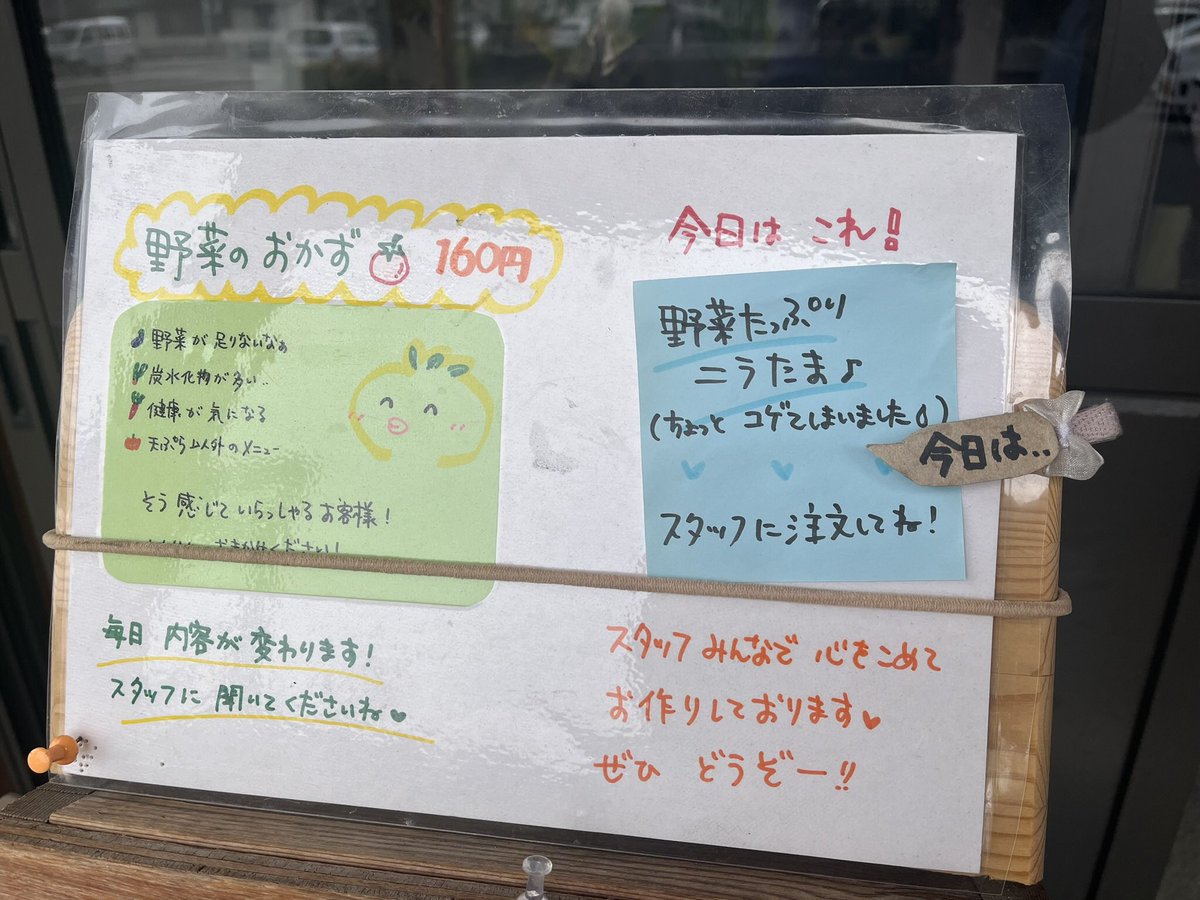 野菜のおかず 160円
野菜が足りないなぁ
炭水化物が多い..
健康が気になる
天ぷら以外のメニュー
そう感じていらっしゃるお客様!
おまかせください!
毎日 内容が変わります!
スタッフに聞いてくださいね♥
今日は これ!!
野菜たっぷり
ニラたま♪
(ちょっと コゲてしまいました)
今日は..
スタッフに注文してね!
スタッフみんなで 心をこめて
お作りしております♥
ぜひ どうぞー!!